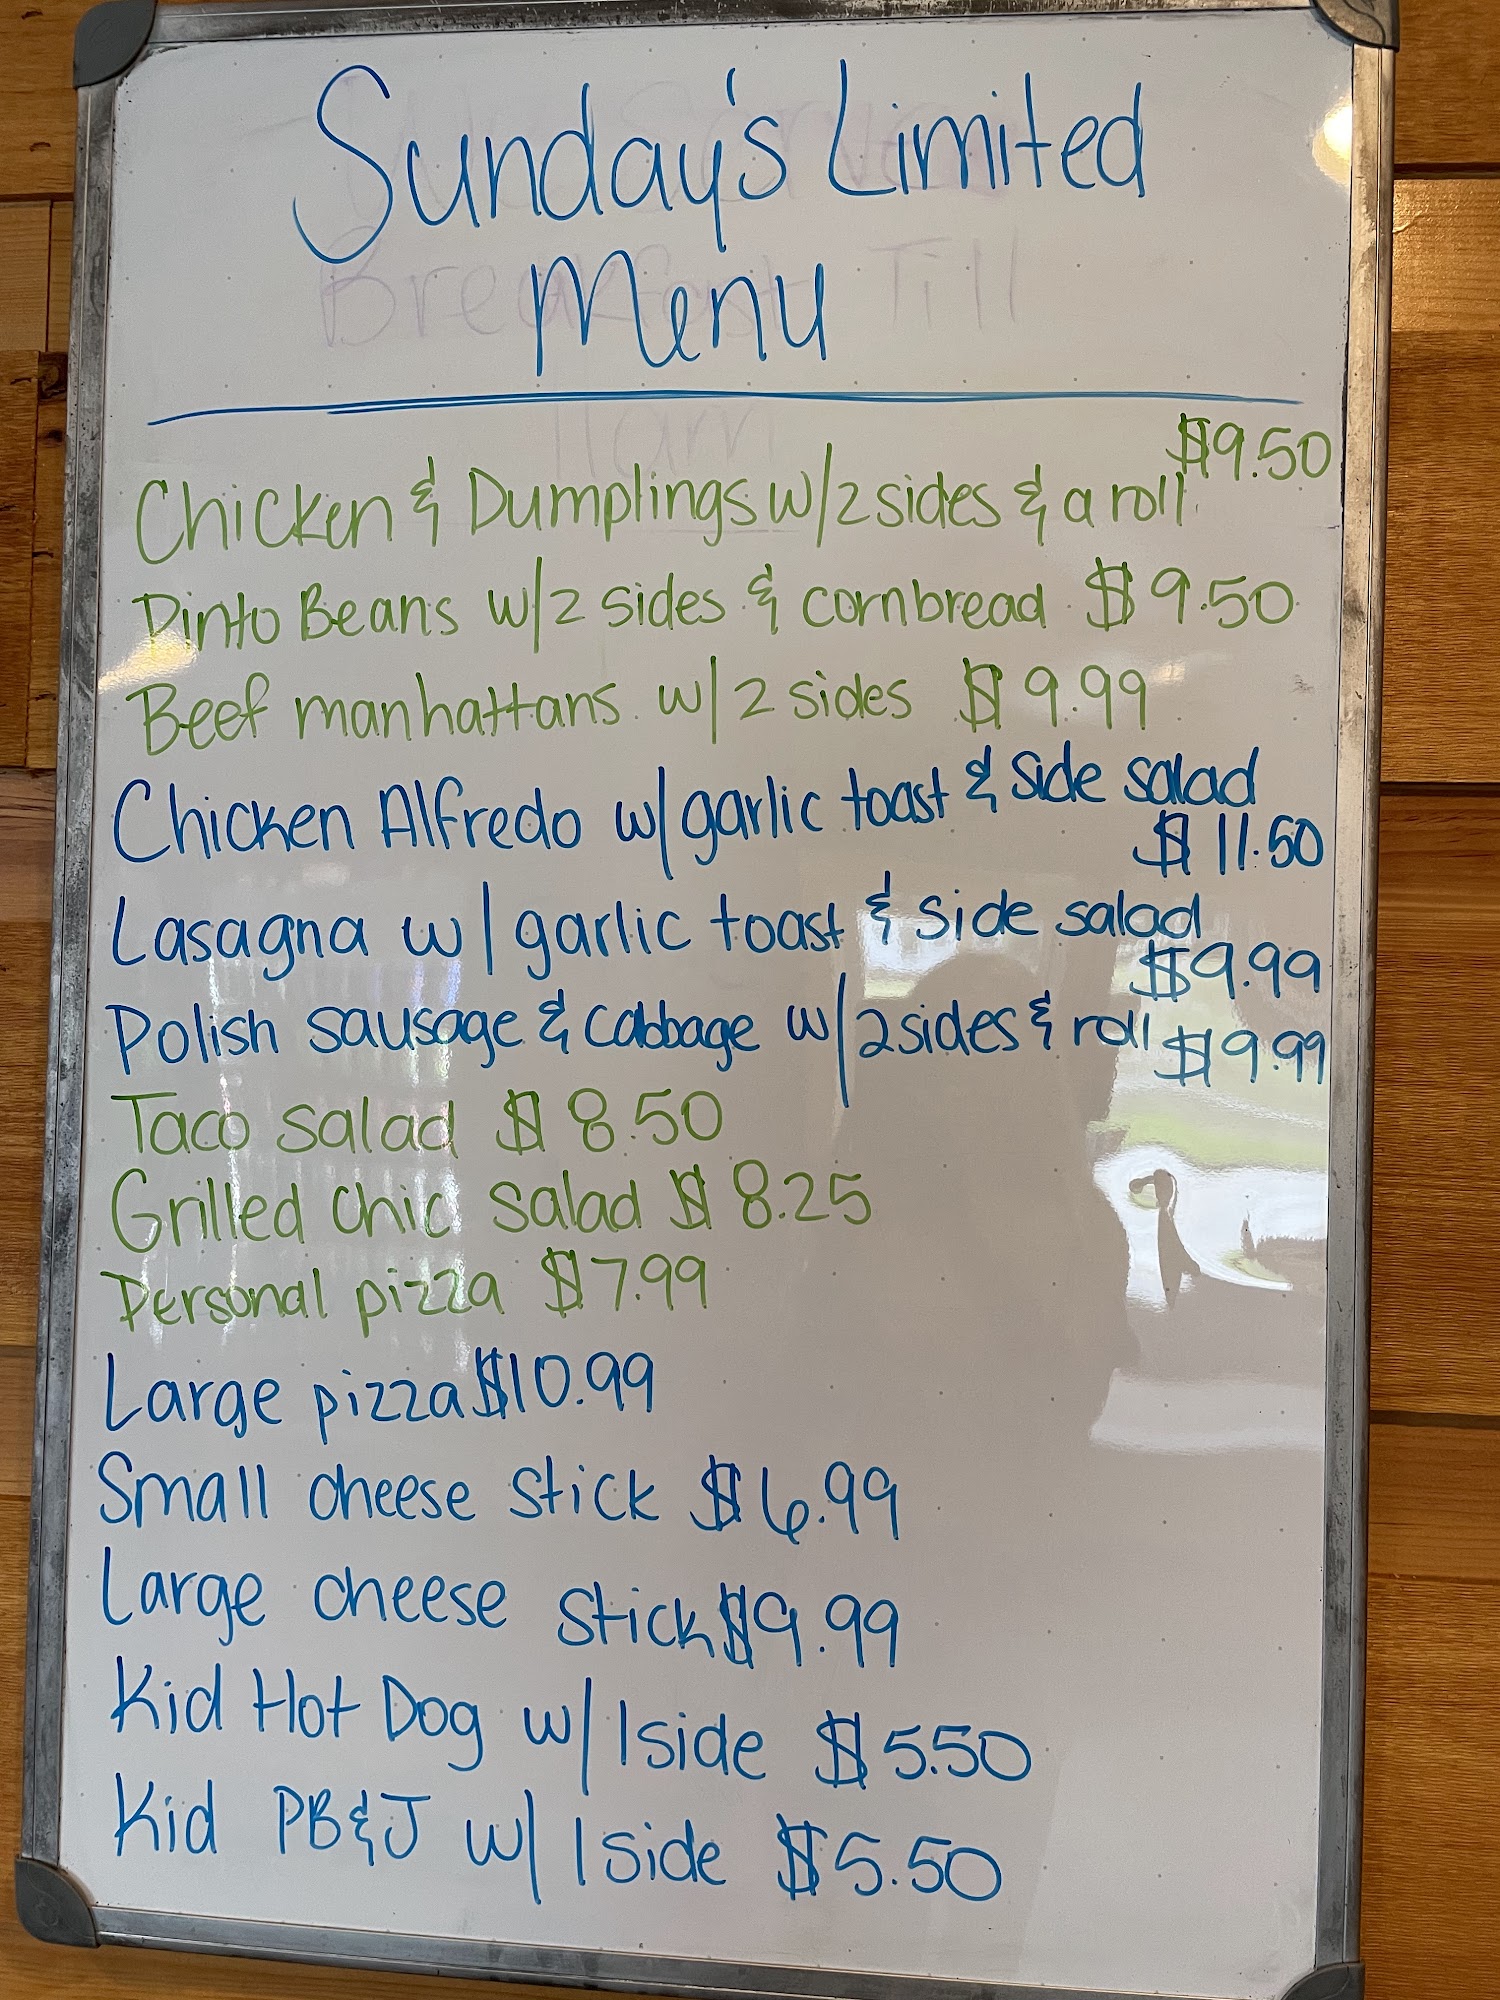 Sunday's Limited
Menu
$9.50
Chicken & Dumplings w/2 sides & a roll
Pinto Beans w/2 sides & cornbread $9.50
Beef manhattans w/2 sides $9.99
Chicken Alfredo w/garlic toast & side salad
$11.50
Lasagna w/garlic toast & side salad
$9.99
Polish sausage & cabbage w/2 sides & roll $9.99
Taco salad $8.50
Grilled chic salad $8.25
Personal pizza $7.99
Large pizza $10.99
Small cheese stick $6.99
Large cheese stick $9.99
Kid Hot Dog w/1 side $5.50
Kid PB&J w/1 side $5.50